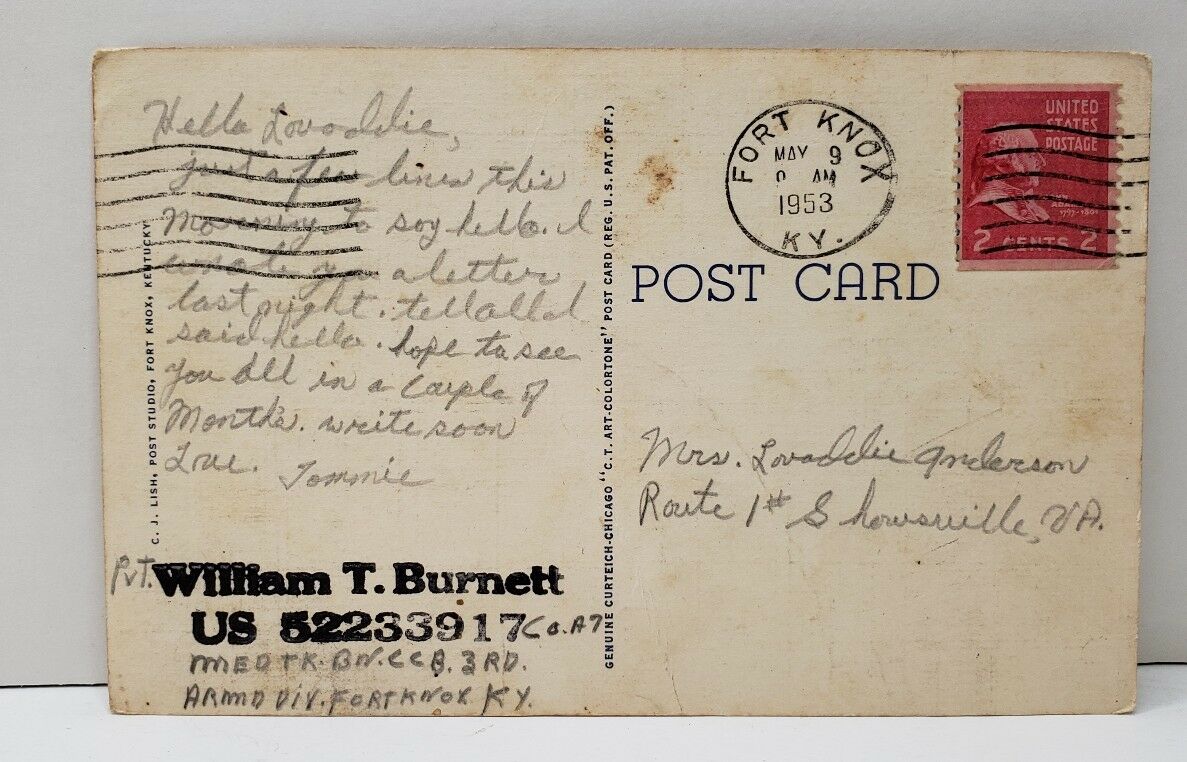 Hello Lovaddie,
just a few lines this
Morning to say hello. I
wrote you a letter
last night. tell all I
said hello. hope to see
you all in a Couple of
Months. write soon
Love. Tommie
Pvt. William T. Burnett
US 52233917 Co. A 7
MED TK. BN. CCB. 3RD.
ARMD DIV. FORT KNOX KY.
C. J. LISH, POST STUDIO, FORT KNOX, KENTUCKY
GENUINE CURTEICH-CHICAGO "C.T. ART-COLORTONE" POST CARD (REG. U.S. PAT. OFF.)
FORT KNOX
MAY 9
AM
1953
KY.
UNITED
STATES
POSTAGE
ADAMS
1797-1801
2 CENTS 2
POST CARD
Mrs. Lovaddie Anderson
Route 1# Showsville, VA.